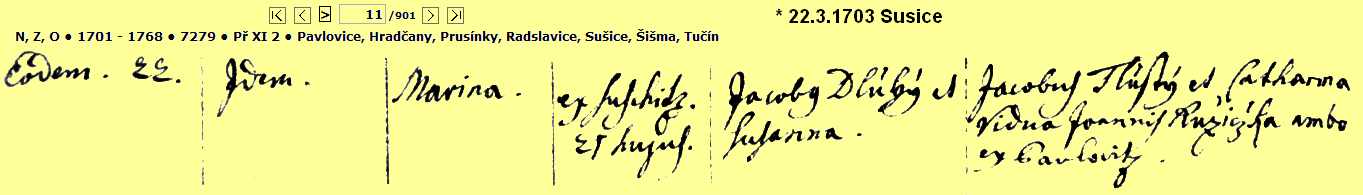 11 /901
* 22.3.1703 Susice
N, Z, O • 1701 - 1768 • 7279 • Př XI 2 • Pavlovice, Hradčany, Prusínky, Radslavice, Sušice, Šišma, Tučín
Eodem. 22. Idem. Marina. ex Suschitz. Jacoby Dlúhý et Jacobus Tlústý et Catharina
21 hujus. Susanna. Vidua Joannis Růžička ambo
ex Pavlovitz.